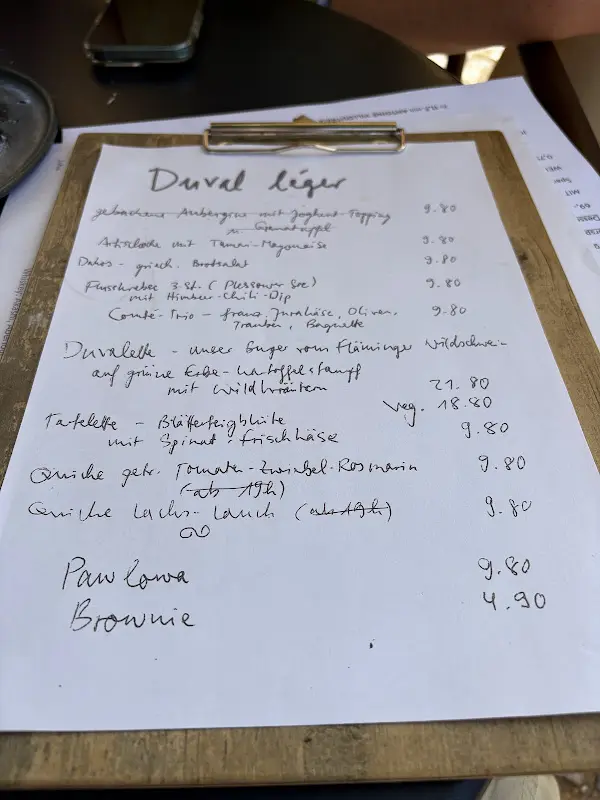 Duval léger
gebackene Aubergine mit Joghurt-Topping 9.80
u Granatapfel
Artischocke mit Tamari-Mayonaise 9.80
Dakos - griech. Brotsalat 9.80
Flusskrebse 3 St. (Plessower See) 9.80
mit Himbeer-Chili-Dip
Comté-Trio - franz. Jurakäse, Oliven, 9.80
Trauben, Baguette
Duvalette - unser Burger vom Fläminger Wildschwein
auf grüne Erbse-Kartoffelstampf
mit Wildkräutern 21.80
veg. 18.80
Tartelette - Blätterteigblüte 9.80
mit Spinat-Frischkäse
Quiche getr. Tomaten-Zwiebel-Rosmarin 9.80
(ab 19h)
Quiche Lachs-Lauch (ab 19h) 9.80
Pawlowa 9.80
Brownie 4.90